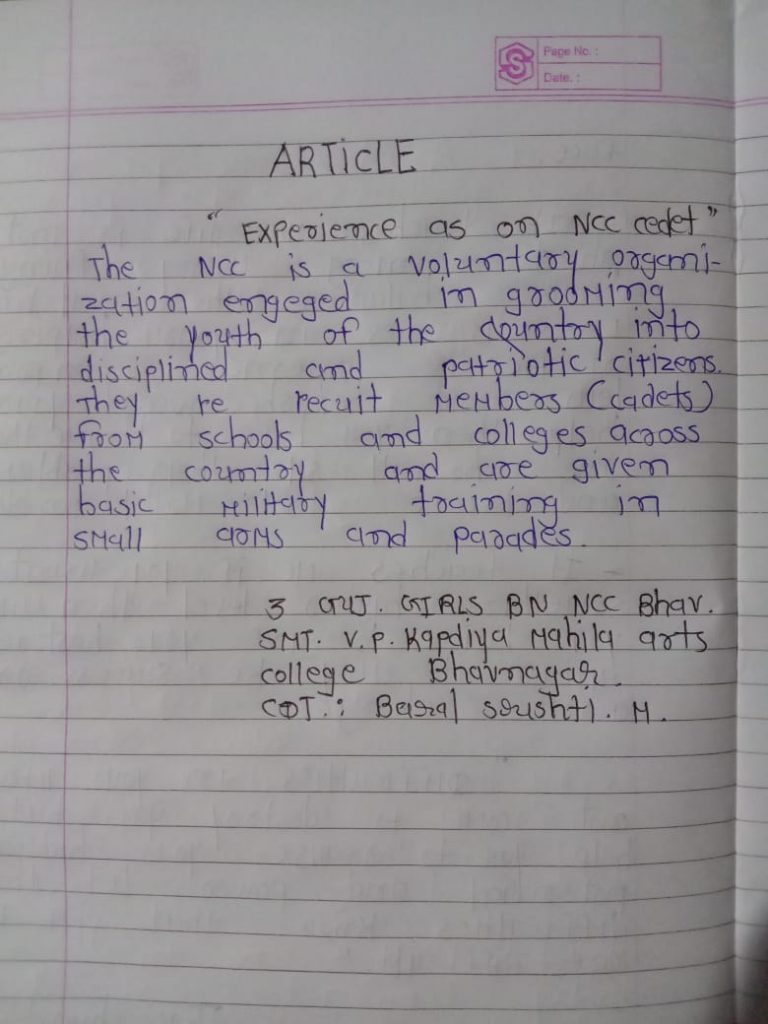 Page No. :
Date. :
ARTICLE
" Experience as on NCC cedet "
The NCC is a voluntary organi-
zation engeged in grooming
the youth of the country into
disciplined and patriotic citizens.
They re recuit Members (cadets)
from schools and colleges across
the country and are given
basic military training in
small arms and parades.
3 GUJ. GIRLS BN NCC Bhav.
SMT. V. P. Kapdiya Mahila arts
college Bhavnagar.
CDT. : Baral srushti. M.